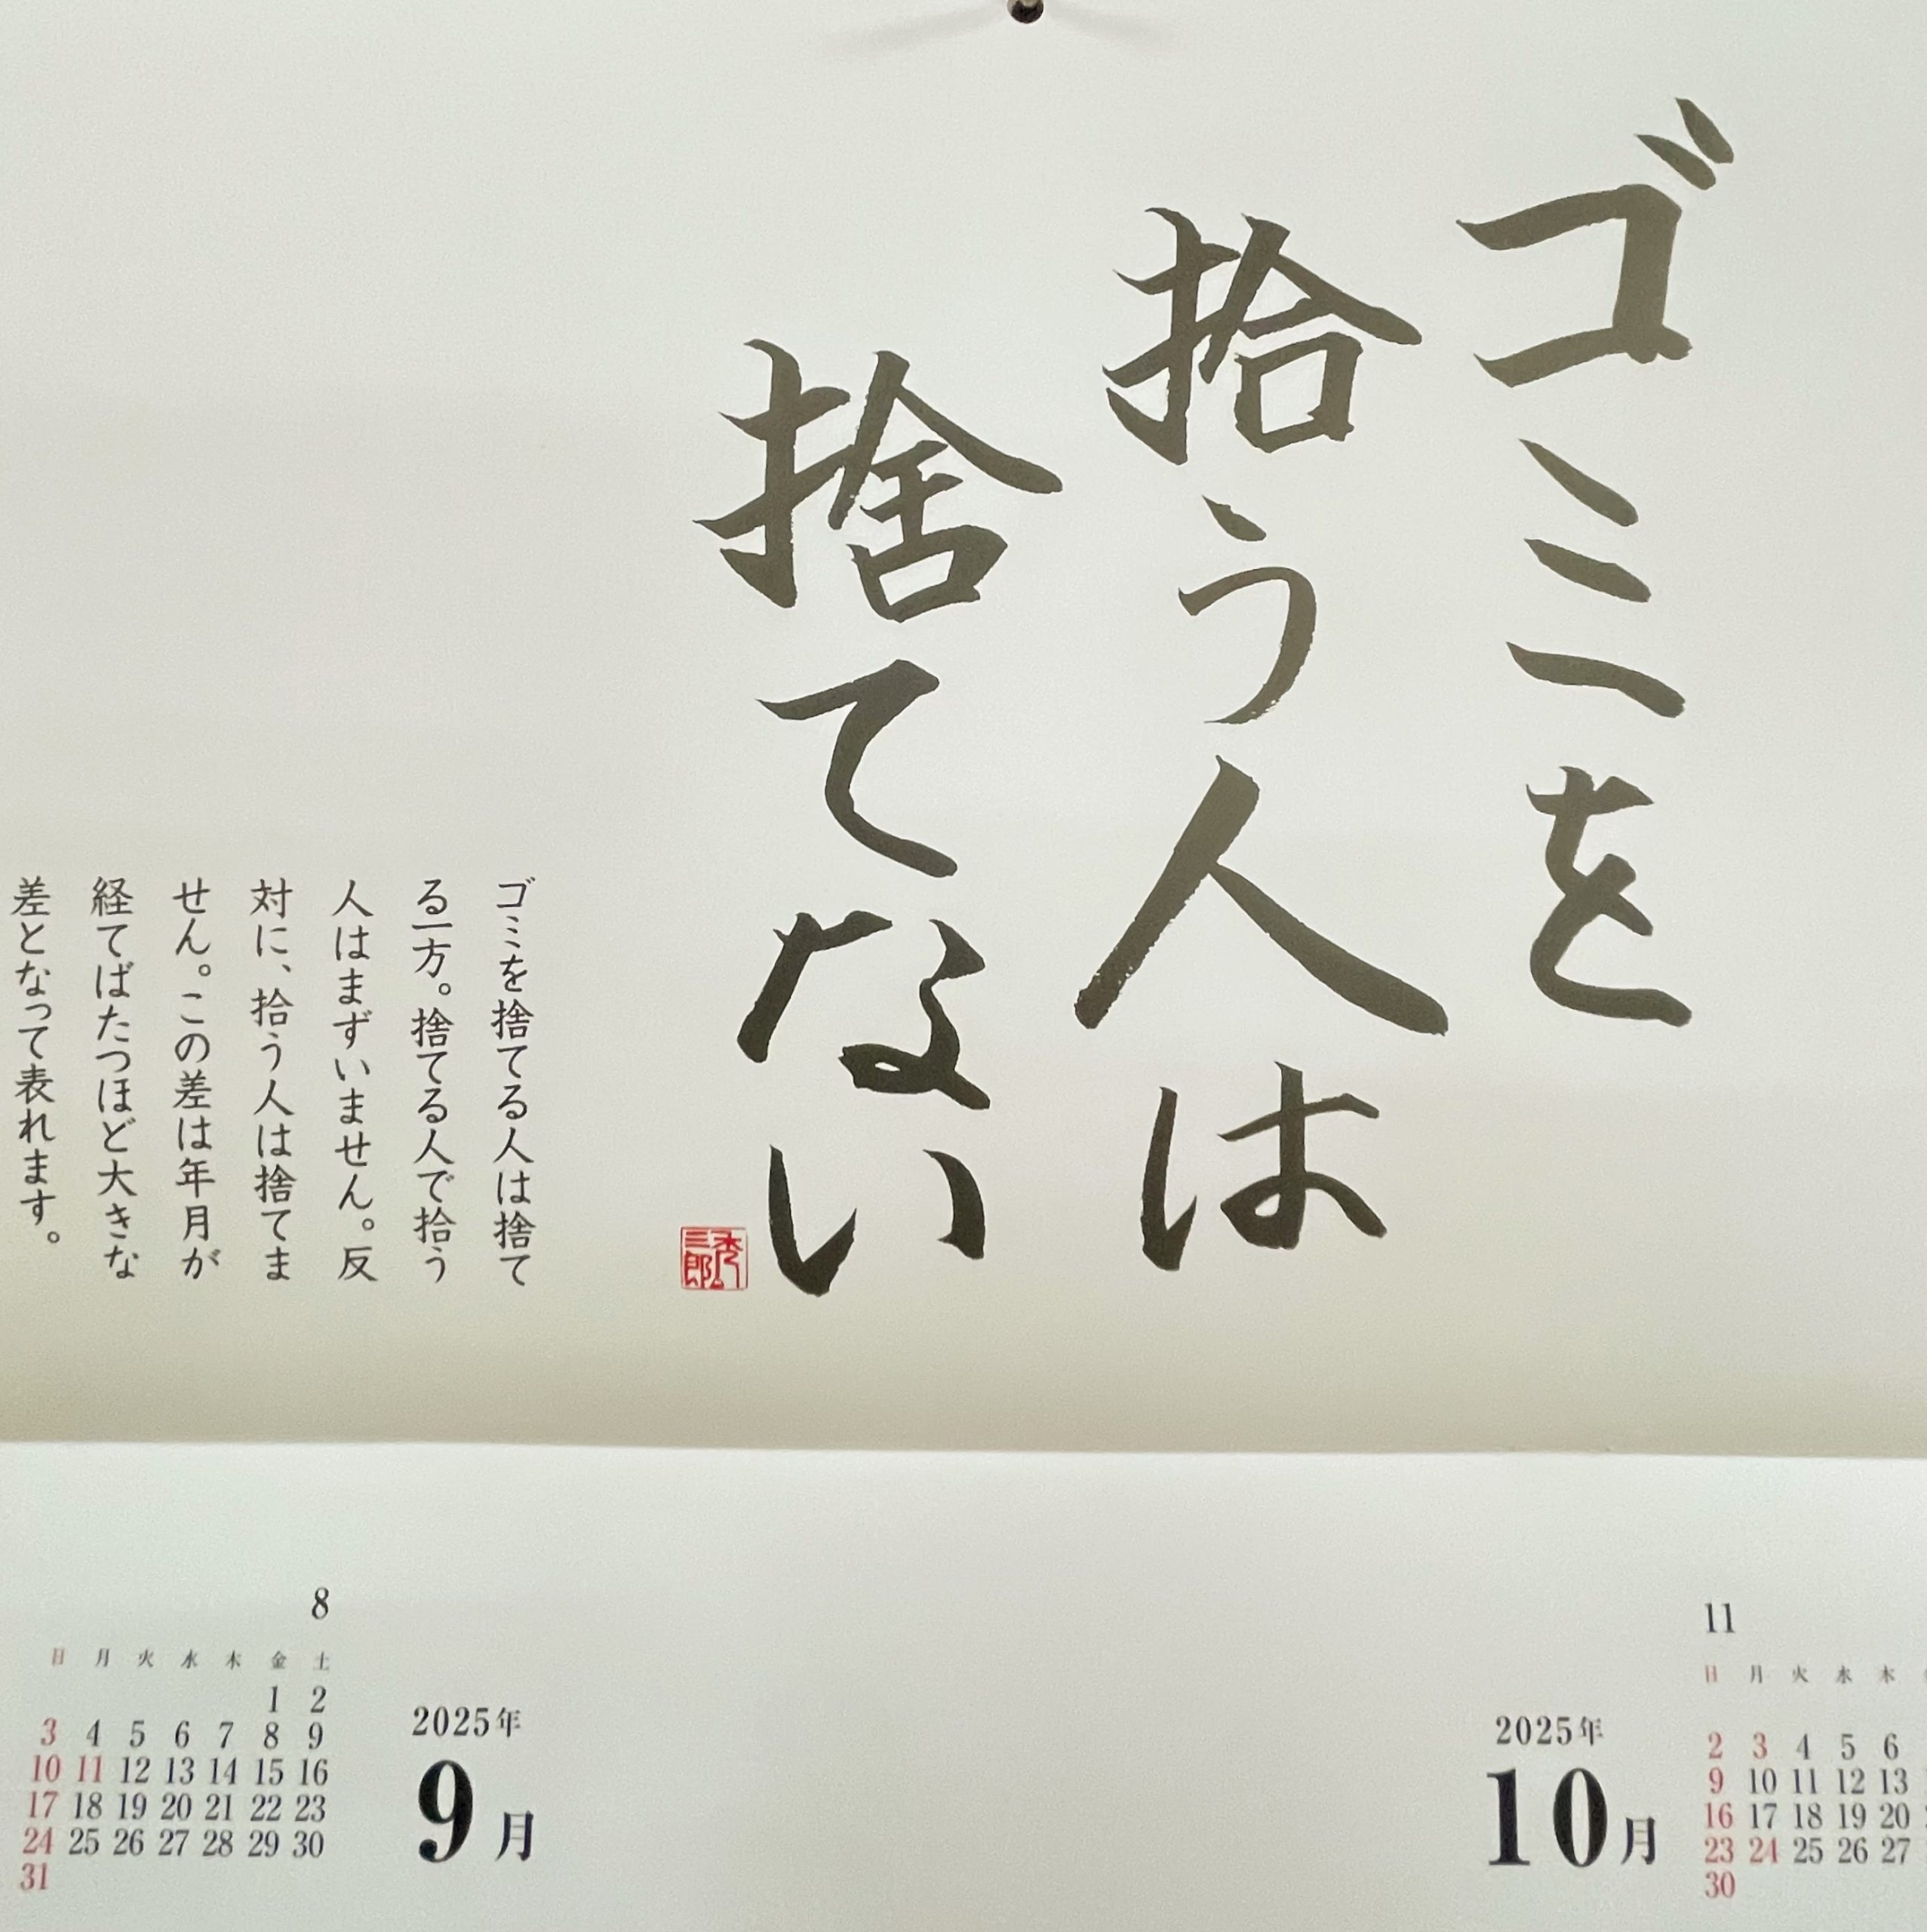 ゴミを
拾う人は
捨てない
ゴミを捨てる人は捨て
る一方。捨てる人で拾う
人はまずいません。反
対に、拾う人は捨てま
せん。この差は年月が
経てばたつほど大きな
差となって表れます。
秀
三郎
8
日 月 火 水 木 金 土
1 2
3 4 5 6 7 8 9
10 11 12 13 14 15 16
17 18 19 20 21 22 23
24 25 26 27 28 29 30
31
2025年
9月
2025年
10月
11
日 月 火 水 木
2 3 4 5 6
9 10 11 12 13
16 17 18 19 20
23 24 25 26 27
30